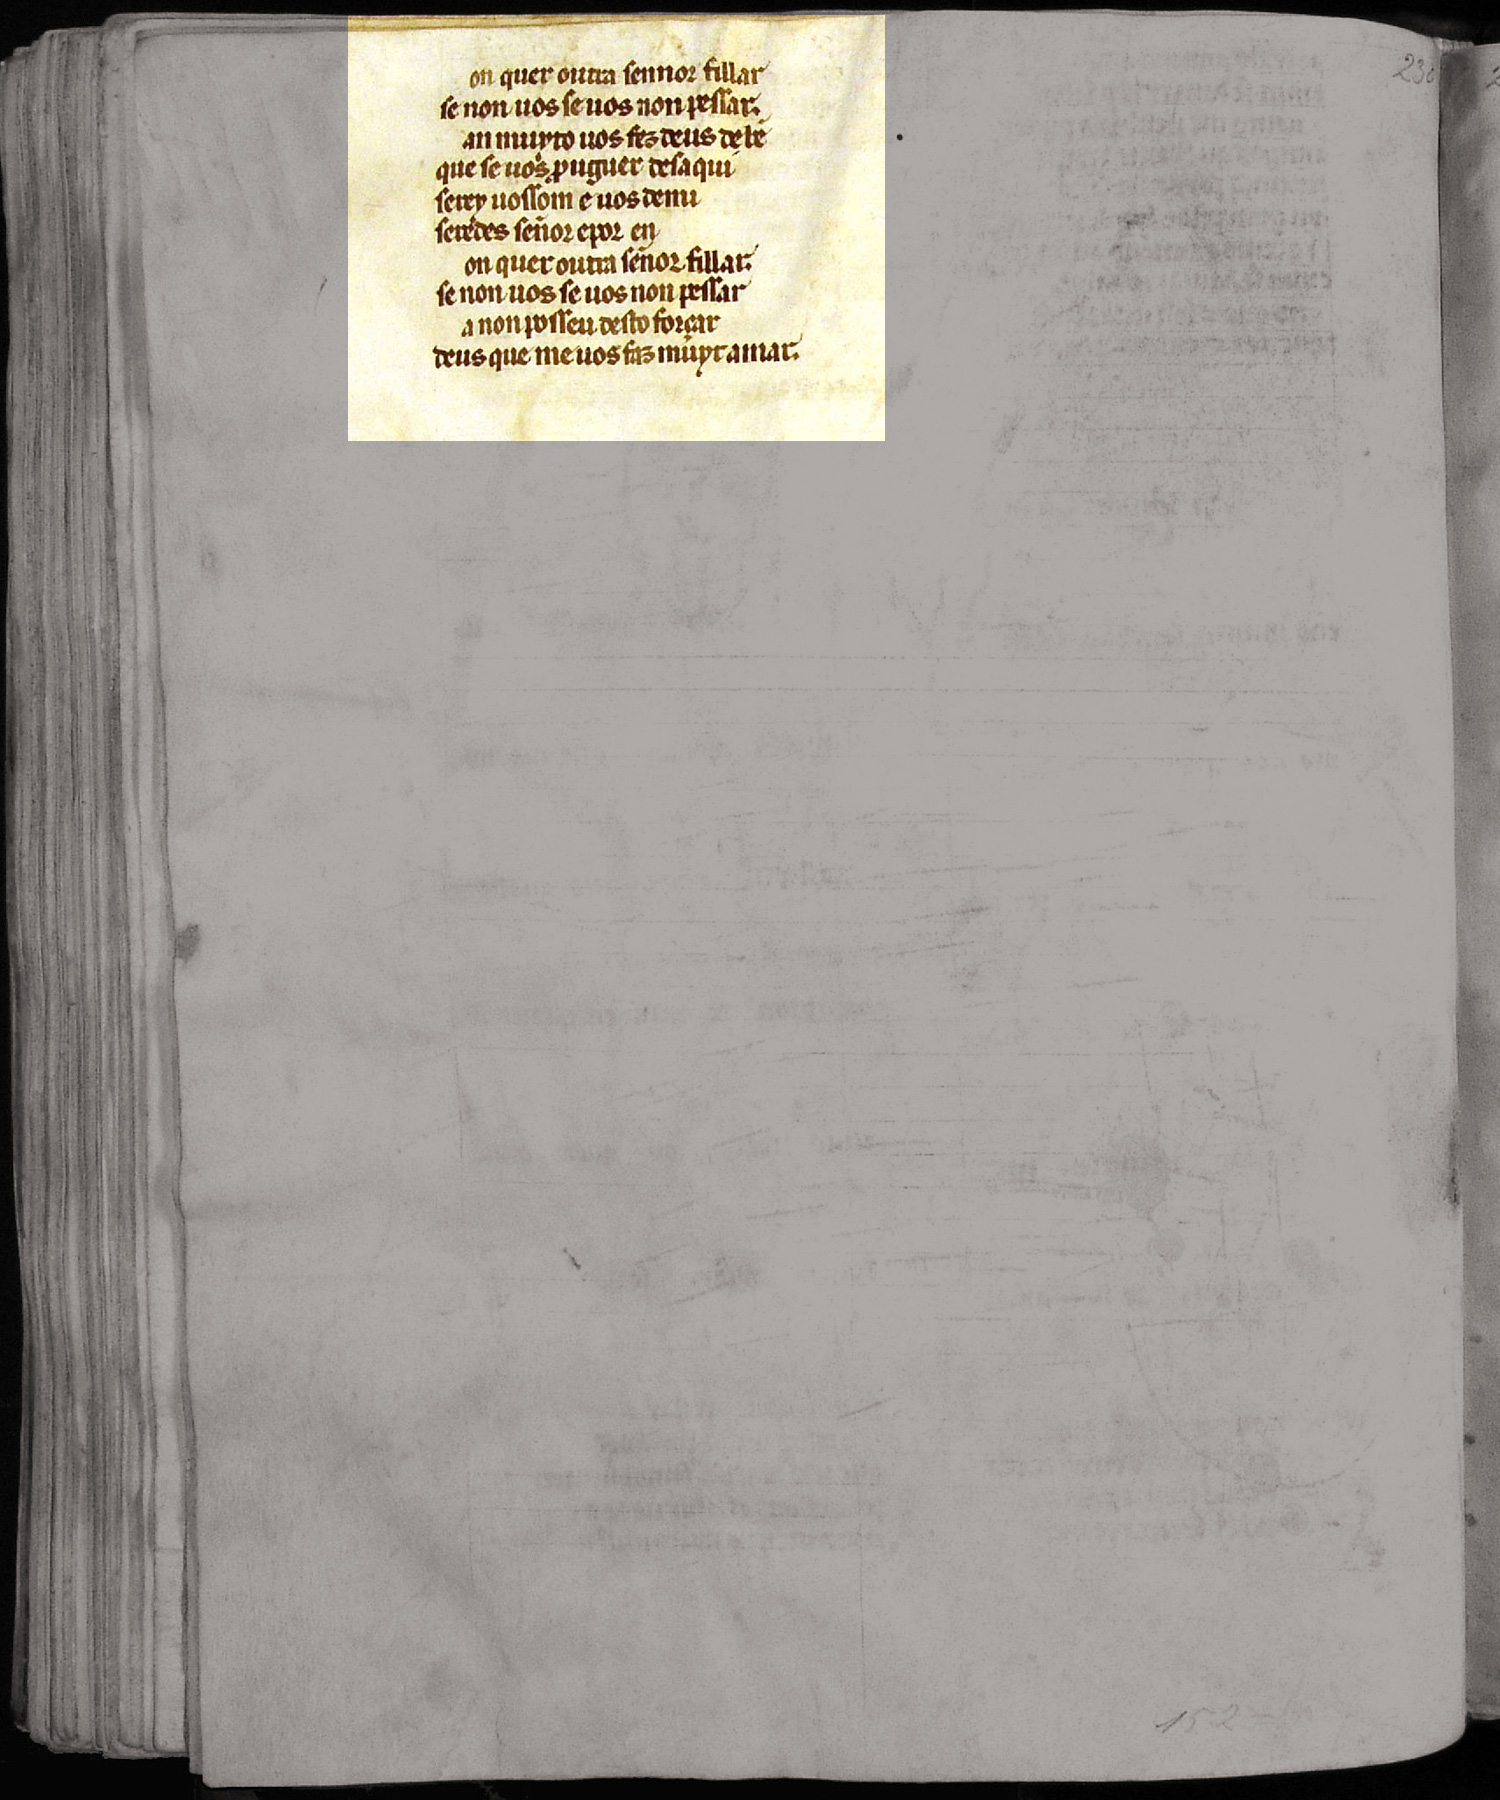 on quer outra sennor fillar
se non uos se uos non pessar.
an muyto uos fez deus de bẽ
que se uos prouguer desaqui
serey uossom e uos de mi
seredes señor e por en
on quer outra señor fillar.
se non uos se uos non pessar
a non posseu desto forçar
deus que me uos faz muyt amar.
230
152